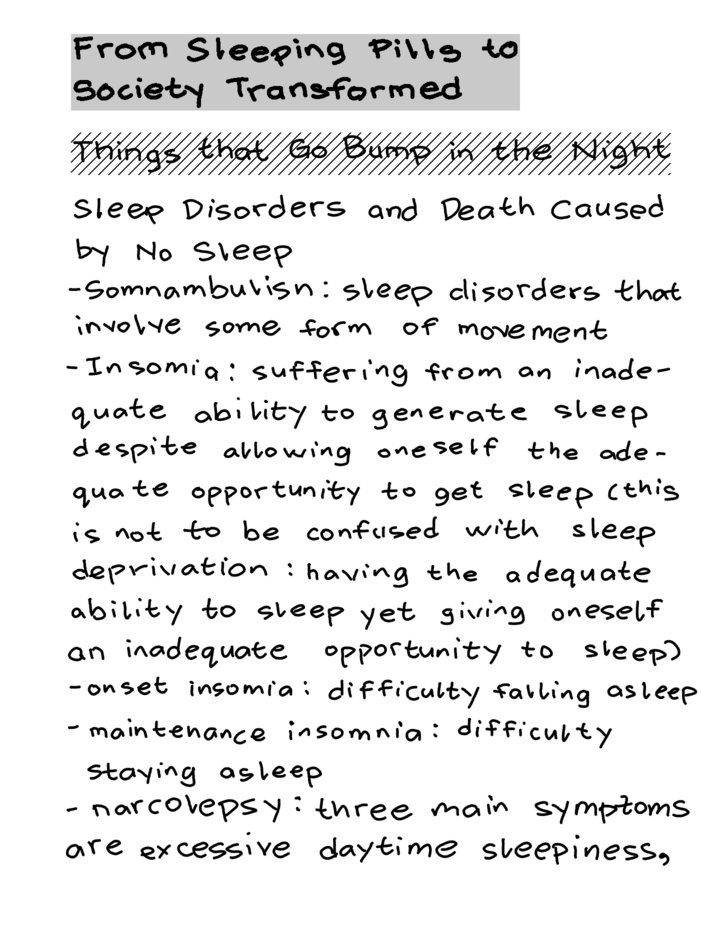 From Sleeping Pills to
Society Transformed
Things that Go Bump in the Night
Sleep Disorders and Death Caused
by No Sleep
-Somnambulisn: sleep disorders that
involve some form of movement
-Insomia: suffering from an inade-
quate ability to generate sleep
despite allowing oneself the ade-
quate opportunity to get sleep (this
is not to be confused with sleep
deprivation: having the adequate
ability to sleep yet giving oneself
an inadequate opportunity to sleep)
-onset insomia: difficulty falling asleep
- maintenance insomnia: difficulty
staying asleep
- narcolepsy: three main symptoms
are excessive daytime sleepiness,